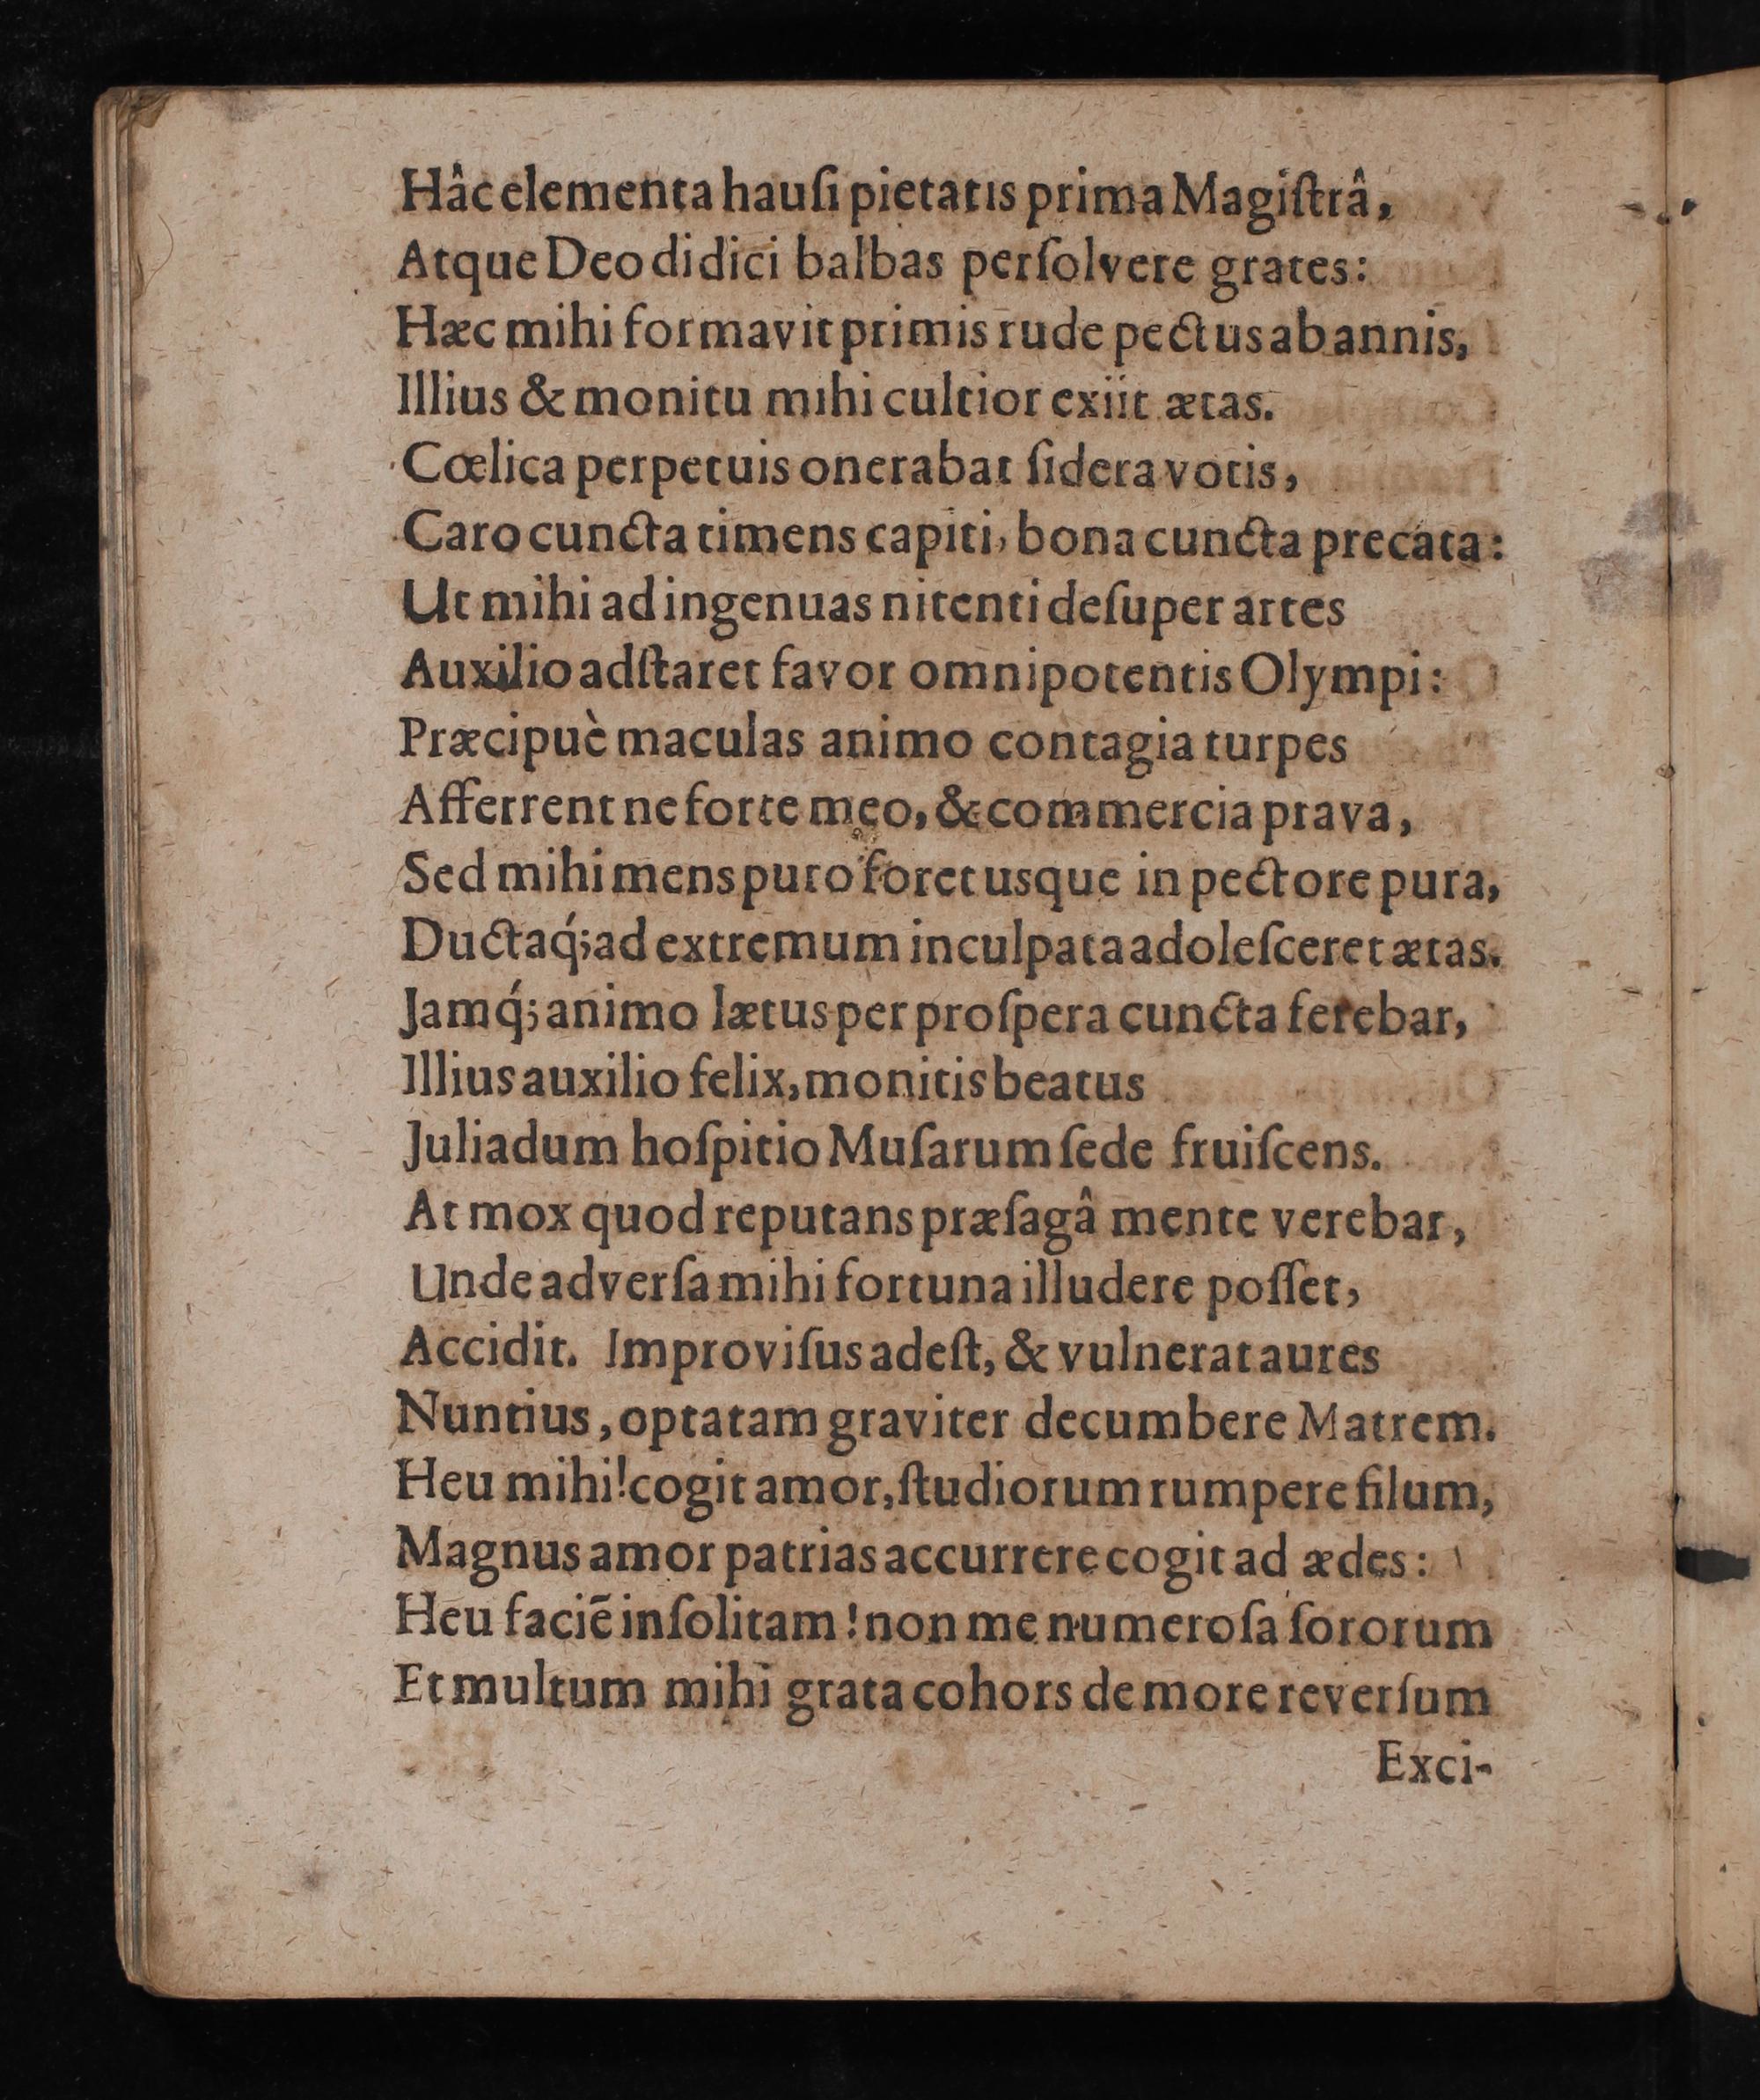 Hâc elementa hauſi pietatis prima Magiſtrâ,
Atque Deo didici balbas perſolvere grates:
Hæc mihi formavit primis rude pectus ab annis,
Illius & monitu mihi cultior exiit ætas.
Cœlica perpetuis onerabat ſidera votis,
Caro cuncta timens capiti, bona cuncta precata:
Ut mihi ad ingenuas nitenti deſuper artes
Auxilio adſtaret favor omnipotentis Olympi:
Præcipuè maculas animo contagia turpes
Afferrent ne forte meo, & commercia prava,
Sed mihi mens puro foret usque in pectore pura,
Ductaq́; ad extremum inculpata adoleſceret ætas.
Jamq́; animo lætus per proſpera cuncta ferebar,
Illius auxilio felix, monitis beatus
Juliadum hoſpitio Muſarum ſede fruiſcens.
At mox quod reputans præſagâ mente verebar,
Unde adverſa mihi fortuna illudere poſſet,
Accidit. Improviſus adeſt, & vulnerat aures
Nuntius, optatam graviter decumbere Matrem.
Heu mihi! cogit amor, ſtudiorum rumpere filum,
Magnus amor patrias accurrere cogit ad ædes:
Heu faciē inſolitam! non me numeroſa ſororum
Et multum mihi grata cohors de more reverſum
Exci-